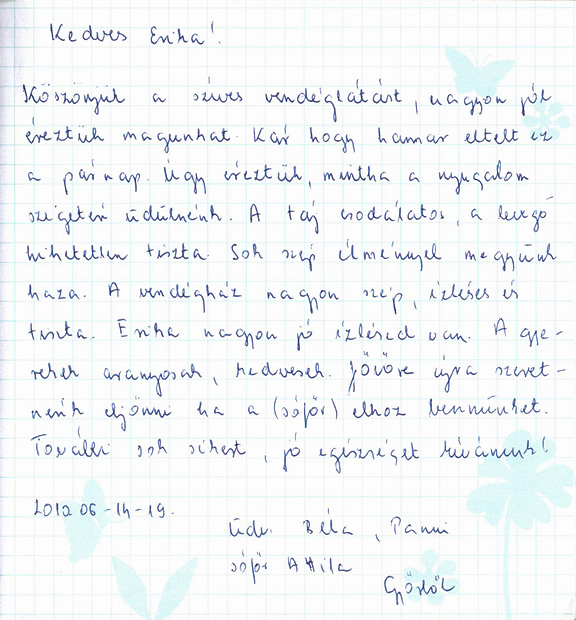 Kedves Erika!
Köszönjük a szíves vendéglátást, nagyon jól
éreztük magunkat. Kár hogy hamar eltelt ez
a párnap. Úgy éreztük, mintha a nyugalom
szigetén üdülnénk. A táj csodálatos, a levegő
hihetetlen tiszta. Sok szép élménnyel megyünk
haza. A vendégház nagyon szép, ízléses és
tiszta. Erika nagyon jó ízlésed van. A gye-
rekek aranyosak, kedvesek. Jövőre újra szeret-
nénk eljönni ha a (sófőr) elhoz bennünket.
További sok sikert, jó egészséget kívánunk!
2012 06-14-19.
Üdv. Béla, Panni
sófőr Attila
Győrből